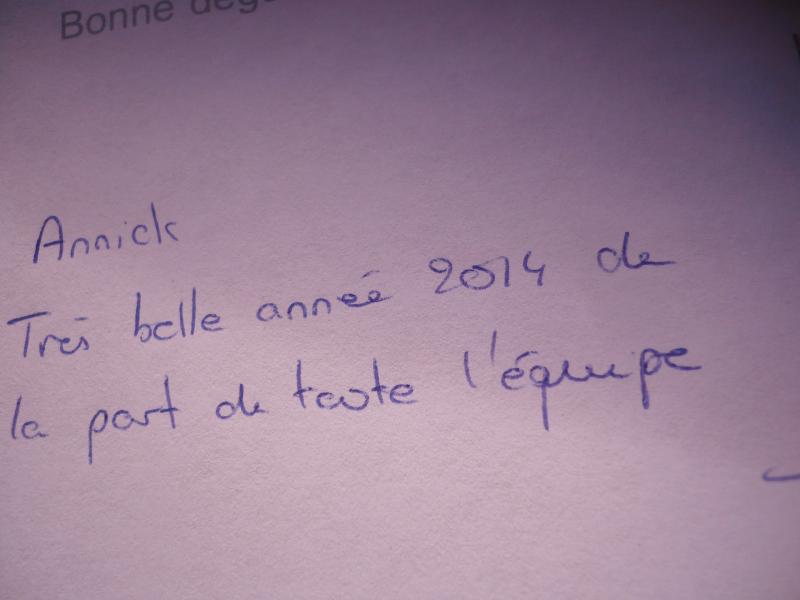 Bonne
Annick
Très belle année 2014 de
la part de toute l'équipe